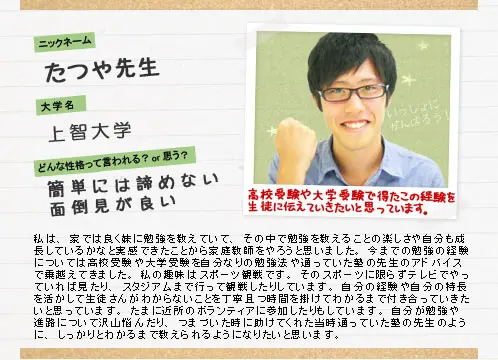 ニックネーム
たつや先生
大学名
上智大学
どんな性格って言われる？or 思う？
簡単には諦めない
面倒見が良い
いっしょに
がんばろう！
高校受験や大学受験で得たこの経験を
生徒に伝えていきたいと思っています。
私は、 家では良く妹に勉強を教えていて、 その中で勉強を教えることの楽しさや自分も成
長しているかなと実感できたことから家庭教師をやろうと思いました。 今までの勉強の経験
については高校受験や大学受験を自分なりの勉強法や通っていた塾の先生のアドバイス
で乗越えてきました。 私の趣味はスポーツ観戦です。 そのスポーツに限らずテレビでやっ
ていれば見たり、 スタジアムまで行って観戦したりしています。 自分の経験や自分の特長
を活かして生徒さんがわからないことを丁寧且つ時間を掛けてわかるまで付き合っていきた
いと思っています。 たまに近所のボランティアに参加したりもしています。 自分が勉強や
進路について沢山悩んだり、 つまづいた時に助けてくれた当時通っていた塾の先生のよう
に、 しっかりとわかるまで教えられるようになりたいと思います。